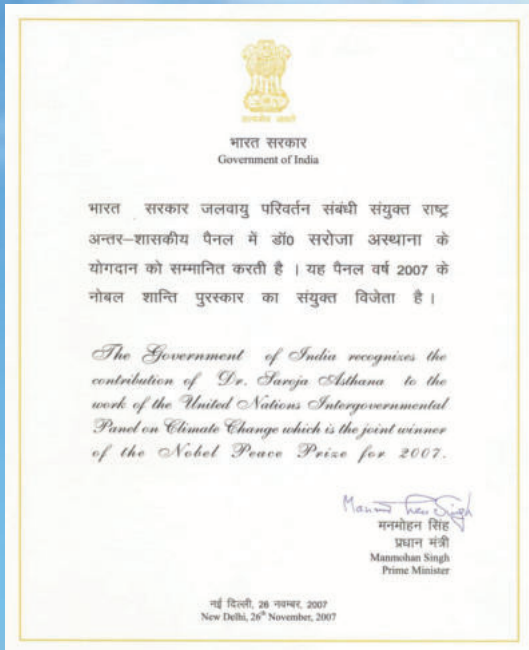 सत्यमेव जयते
भारत सरकार
Government of India
भारत सरकार जलवायु परिवर्तन संबंधी संयुक्त राष्ट्र
अन्तर–शासकीय पैनल में डॉ0 सरोजा अस्थाना के
योगदान को सम्मानित करती है । यह पैनल वर्ष 2007 के
नोबल शान्ति पुरस्कार का संयुक्त विजेता है ।
The Government of India recognizes the
contribution of Dr. Saroja Asthana to the
work of the United Nations Intergovernmental
Panel on Climate Change which is the joint winner
of the Nobel Peace Prize for 2007.
Manmohan Singh
मनमोहन सिंह
प्रधान मंत्री
Manmohan Singh
Prime Minister
नई दिल्ली, 26 नवम्बर, 2007
New Delhi, 26th November, 2007